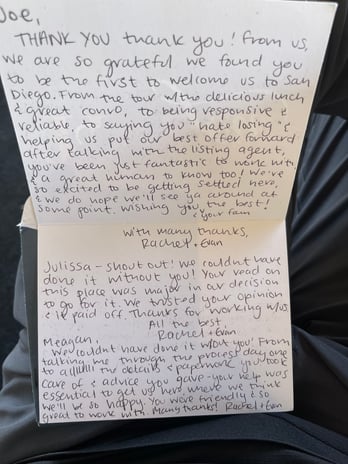 Joe,
THANK YOU thank you! From us,
we are so grateful we found you
to be the first to welcome us to San
Diego. From the tour w/the delicious lunch
& great convo, to being responsive &
reliable, to saying you "hate losing" &
helping us put our best offer forward
after talking with the listing agent,
you've been just fantastic to work with
& a great human to know too! We're
so excited to be getting settled here,
& we do hope we'll see ya around at
some point. Wishing you the best!
& your fam
with many thanks,
Rachel + Evan
Julissa - shout out! We couldn't have
done it without you! Your read on
this place was major in our decision
to go for it. We trusted your opinion
& it paid off. Thanks for working w/us.
All the best,
Rachel + Evan
Meagan,
We couldn't have done it w/out you! From
talking me through the process day one
to allllll the details & paperwork you took
care of & advice you gave - your help was
essential to get us here where we think
we'll be so happy. You were friendly & so
great to work with. Many thanks! Rachel + Evan